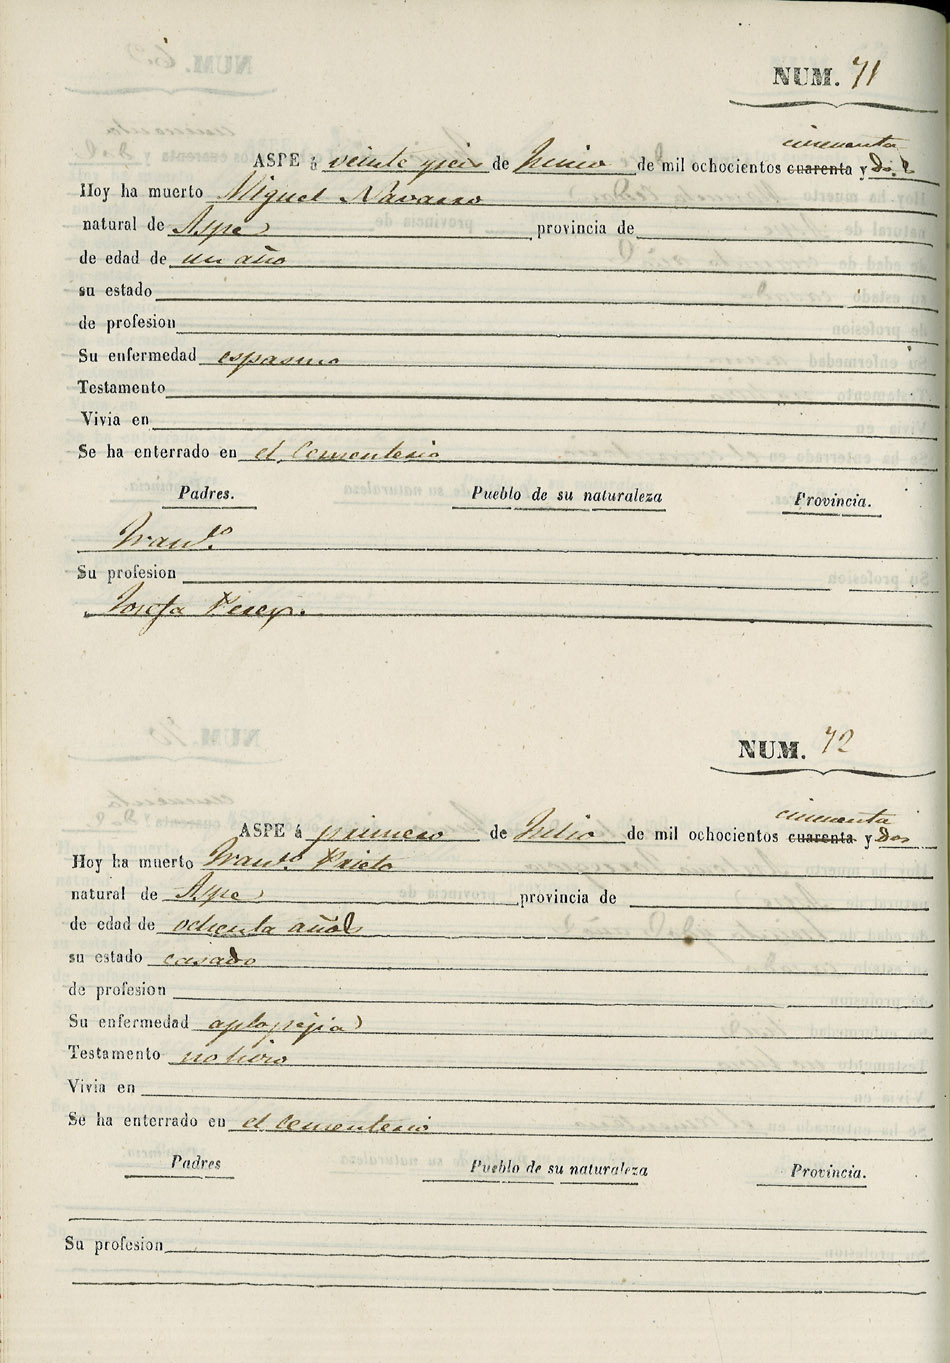 NUM. 71
cincuenta
ASPE á veinte y seis de Junio de mil ochocientos cuarenta y dos
Hoy ha muerto Miguel Navarro
natural de Aspe provincia de
de edad de un año
su estado
de profesion
Su enfermedad espasmo
Testamento
Vivia en
Se ha enterrado en el Cementerio
Padres. Pueblo de su naturaleza Provincia.
Franco.
Su profesion
Josefa Perez.
NUM. 72
cincuenta
ASPE á primero de Julio de mil ochocientos cuarenta y dos
Hoy ha muerto Franco. Prieto
natural de Aspe provincia de
de edad de ochenta años
su estado casado
de profesion
Su enfermedad aplopejia
Testamento no hizo
Vivia en
Se ha enterrado en el Cementerio
Padres Pueblo de su naturaleza Provincia.
Su profesion